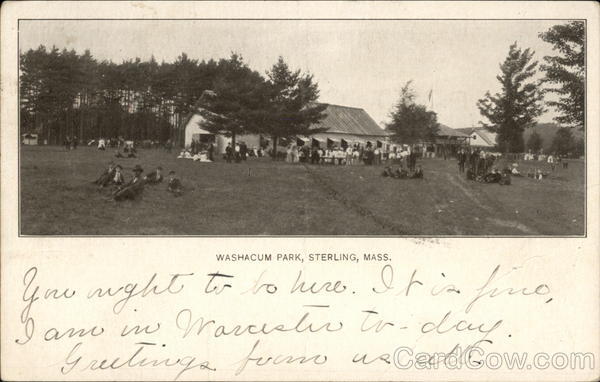 WASHACUM PARK, STERLING, MASS.
You ought to be here. It is fine,
I am in Worcester to-day.
Greetings from us all
CardCow.com